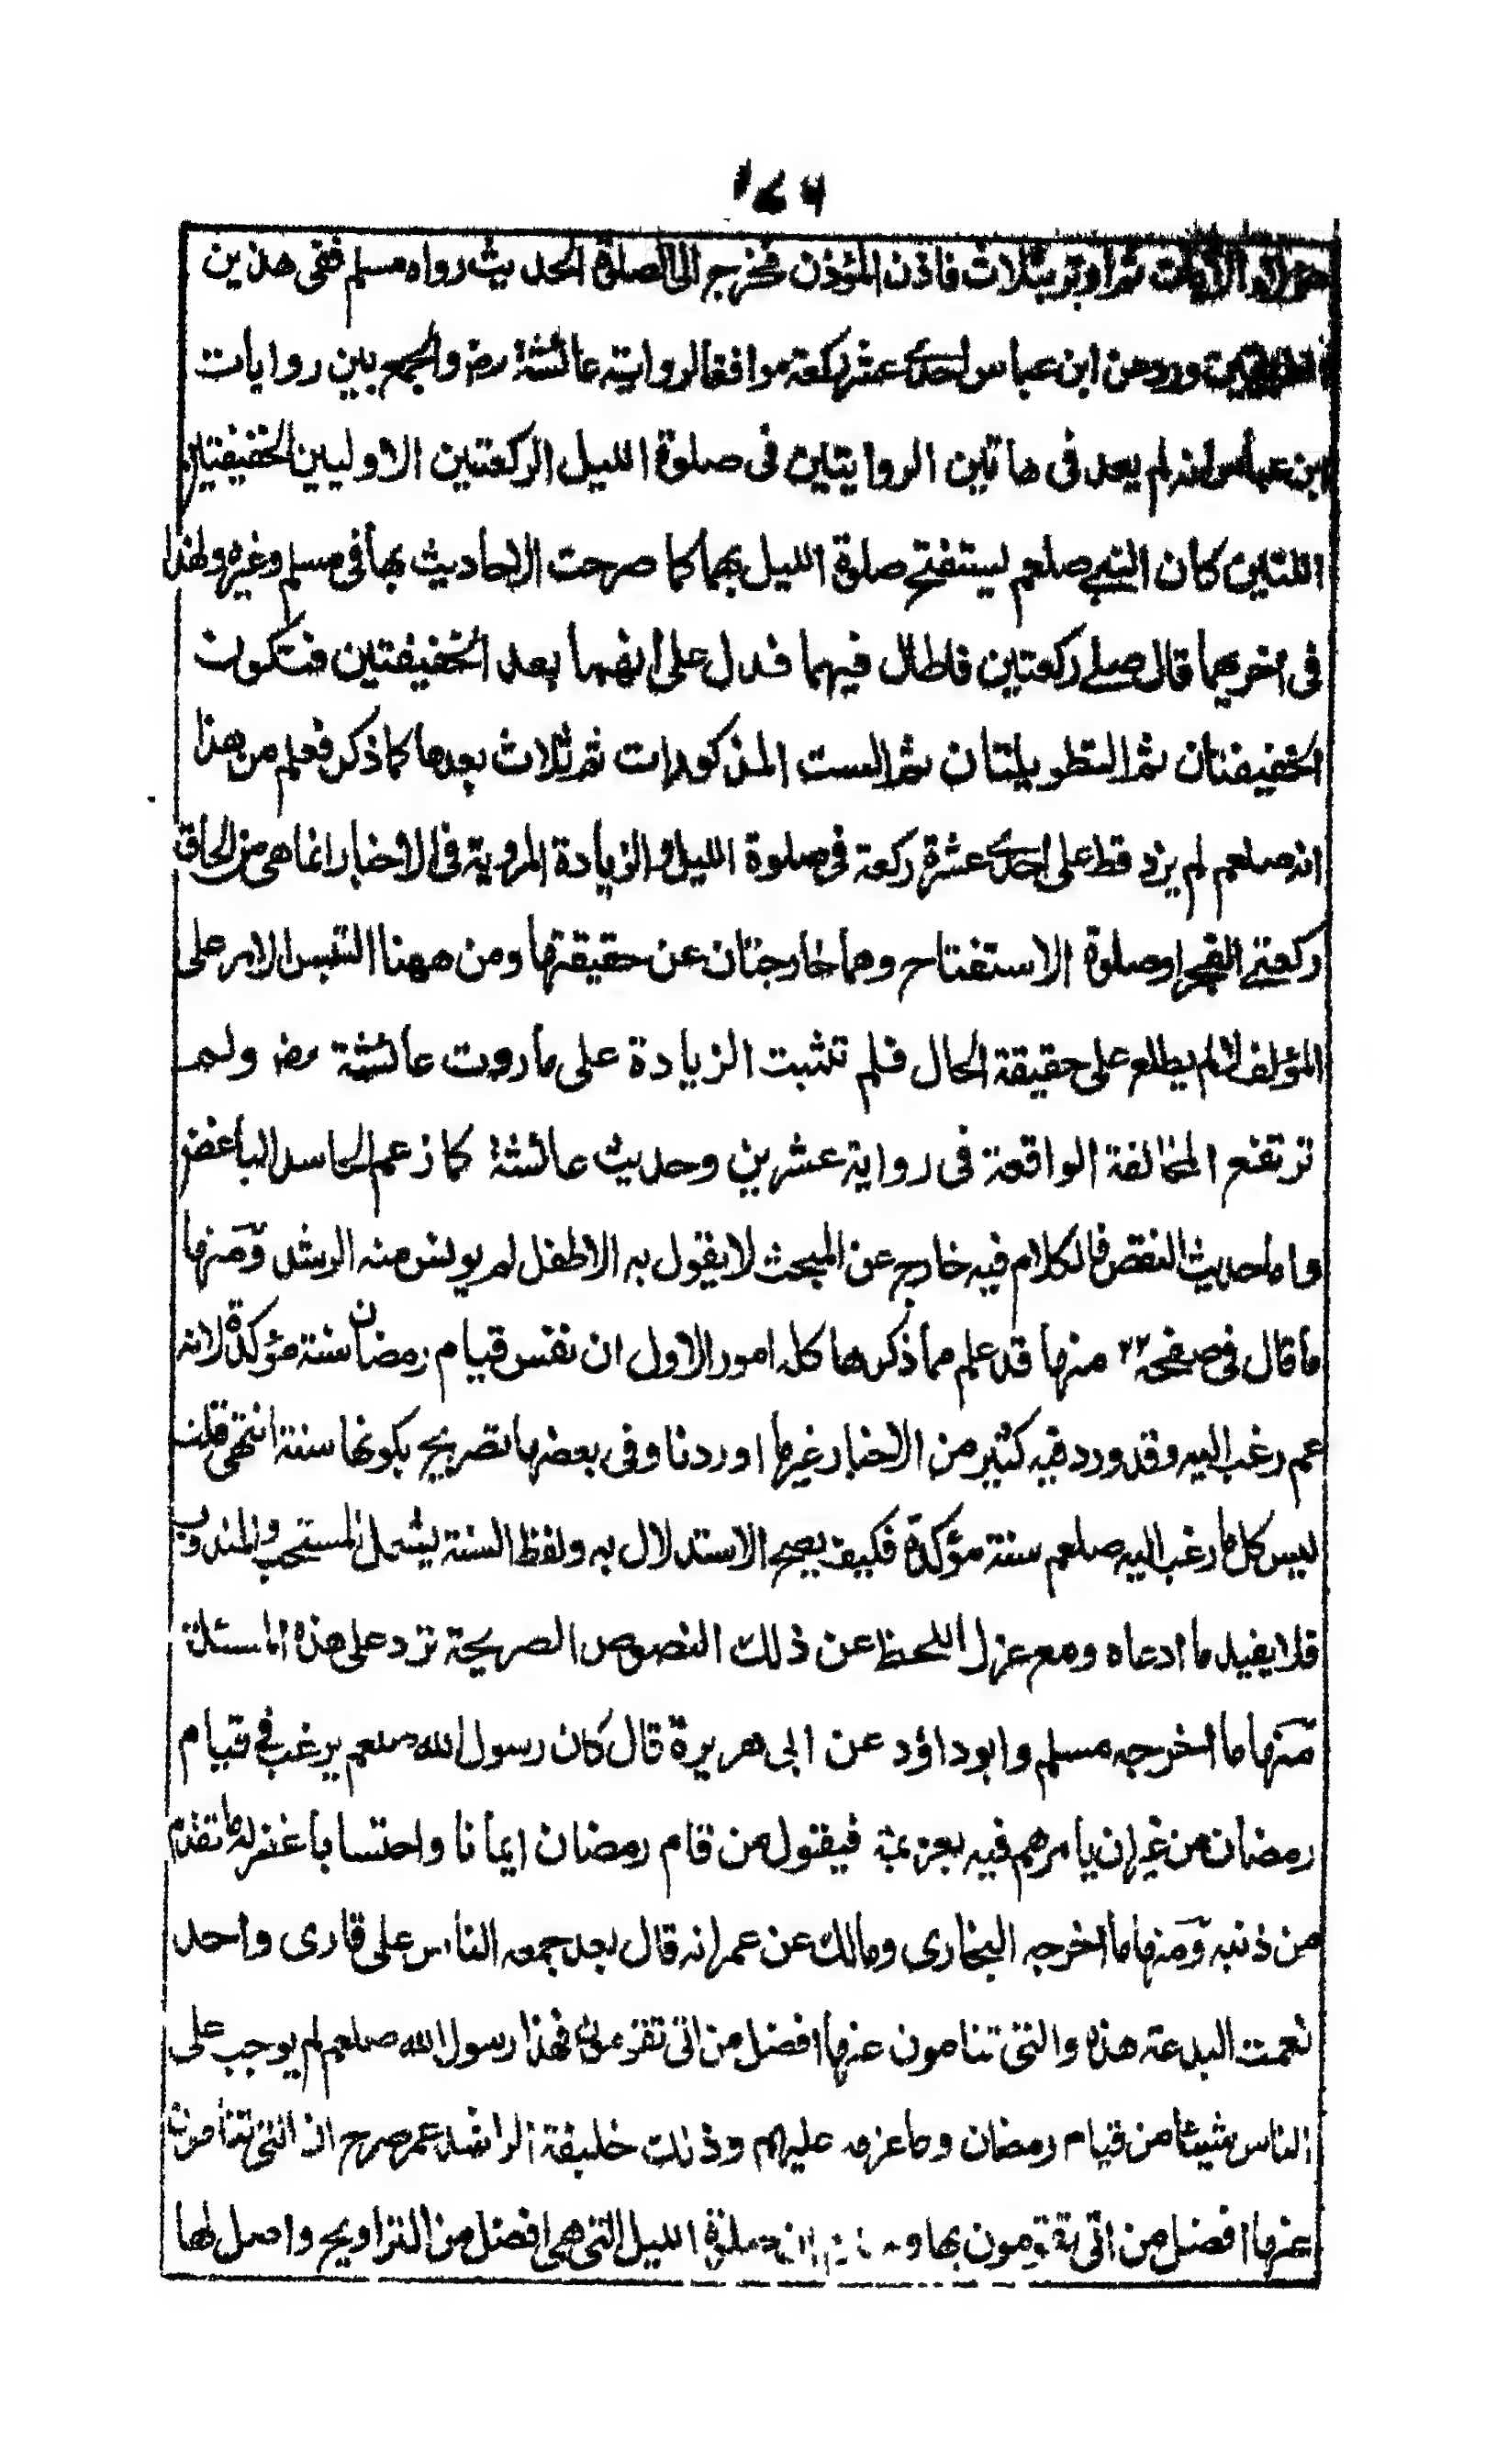 ١٧٦
هؤلاء الآيات ثم اوتر بثلاث فاذن المؤذن فخرج الى الصلوة الحديث رواه مسلم ففى هذين
ورد عن ابن عباس احدى عشر ركعة موافقا لرواية عائشة رض والجمع بين روايات
ابن عباس انه لم يعد فى هاتين الروايتين فى صلوة الليل الركعتين الاوليين الخفيفتين
اللتين كان النبى صلعم يستفتح صلوة الليل بهما كما صرحت الاحاديث بها فى مسلم وغيره ولهذا
فى اخريهما قال صلى ركعتين فاطال فيهما فدل على انهما بعد الخفيفتين فتكون
الخفيفتان ثم الطويلتان ثم الست المذكورات ثم ثلاث بعدها كما ذكر فعلم من هذا
انه صلعم لم يزد قط على احدى عشرة ركعة فى صلوة الليل والزيادة المروية فى الاخبار انما هى من الحاق
ركعتى الفجر او صلوة الاستفتاح وهما خارجتان عن حقيقتها ومن ههنا التبس الامر على
المؤلف لم يطلع على حقيقة الحال فلم تثبت الزيادة على ما روت عائشة رض ولم
ترتفع المخالفة الواقعة فى رواية عشرين وحديث عائشة كما زعم الحاسد الباغض
واما حديث النقص فالكلام فيه خارج عن المبحث لا يقول به الا طفل لم يونس منه الرشد ومنها
ما قال فى صفحه ٢٢ منها قد علم مما ذكرها كله امور الاول ان نفس قيام رمضان سنة مؤكدة لانه
عم رغب اليه وقد ورد فيه كثير من الاخبار غير ما اوردنا وفى بعضها تصريح بكونها سنة انتهى قلت
ليس كل ما رغب اليه صلعم سنة مؤكدة فكيف يصح الاستدلال به ولفظ السنة يشمل المستحب والمندوب
فلا يفيد ما ادعاه ومع عزل اللحظ عن ذلك النصوص الصريحة ترد على هذه المسئلة
منها ما اخرجه مسلم وابوداؤد عن ابى هريرة قال كان رسول الله صلعم يرغب فى قيام
رمضان من غير ان يامرهم فيه بعزيمة فيقول من قام رمضان ايمانا واحتسابا غفر له ما تقدم
من ذنبه ومنها ما اخرجه البخارى ومالك عن عمر انه قال بعد جمعه الناس على قارى واحد
نعمت البدعة هذه والتى تنامون عنها افضل من التى تقومون فهذا رسول الله صلعم لم يوجب على
الناس شيئا من قيام رمضان وما عزمه عليهم وذلك خليفة الراشد عمر صرح ان التى تنامون
عنها افضل من التى تقومون بها صلوة الليل التى هى افضل من التراويح واصل لها